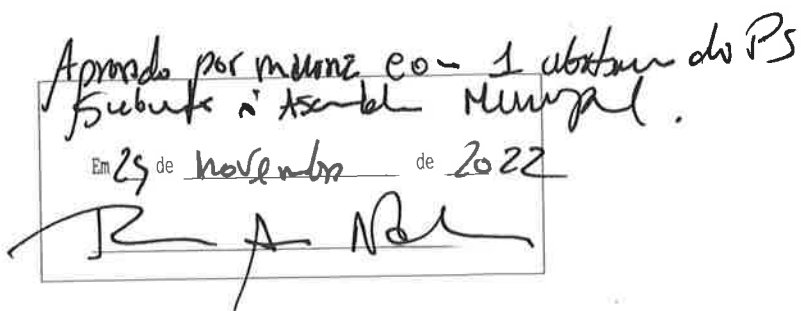 Aprovado por maioria com 1 abstenção do PS
Submeta à Assembleia Municipal.
Em 25 de novembro de 2022